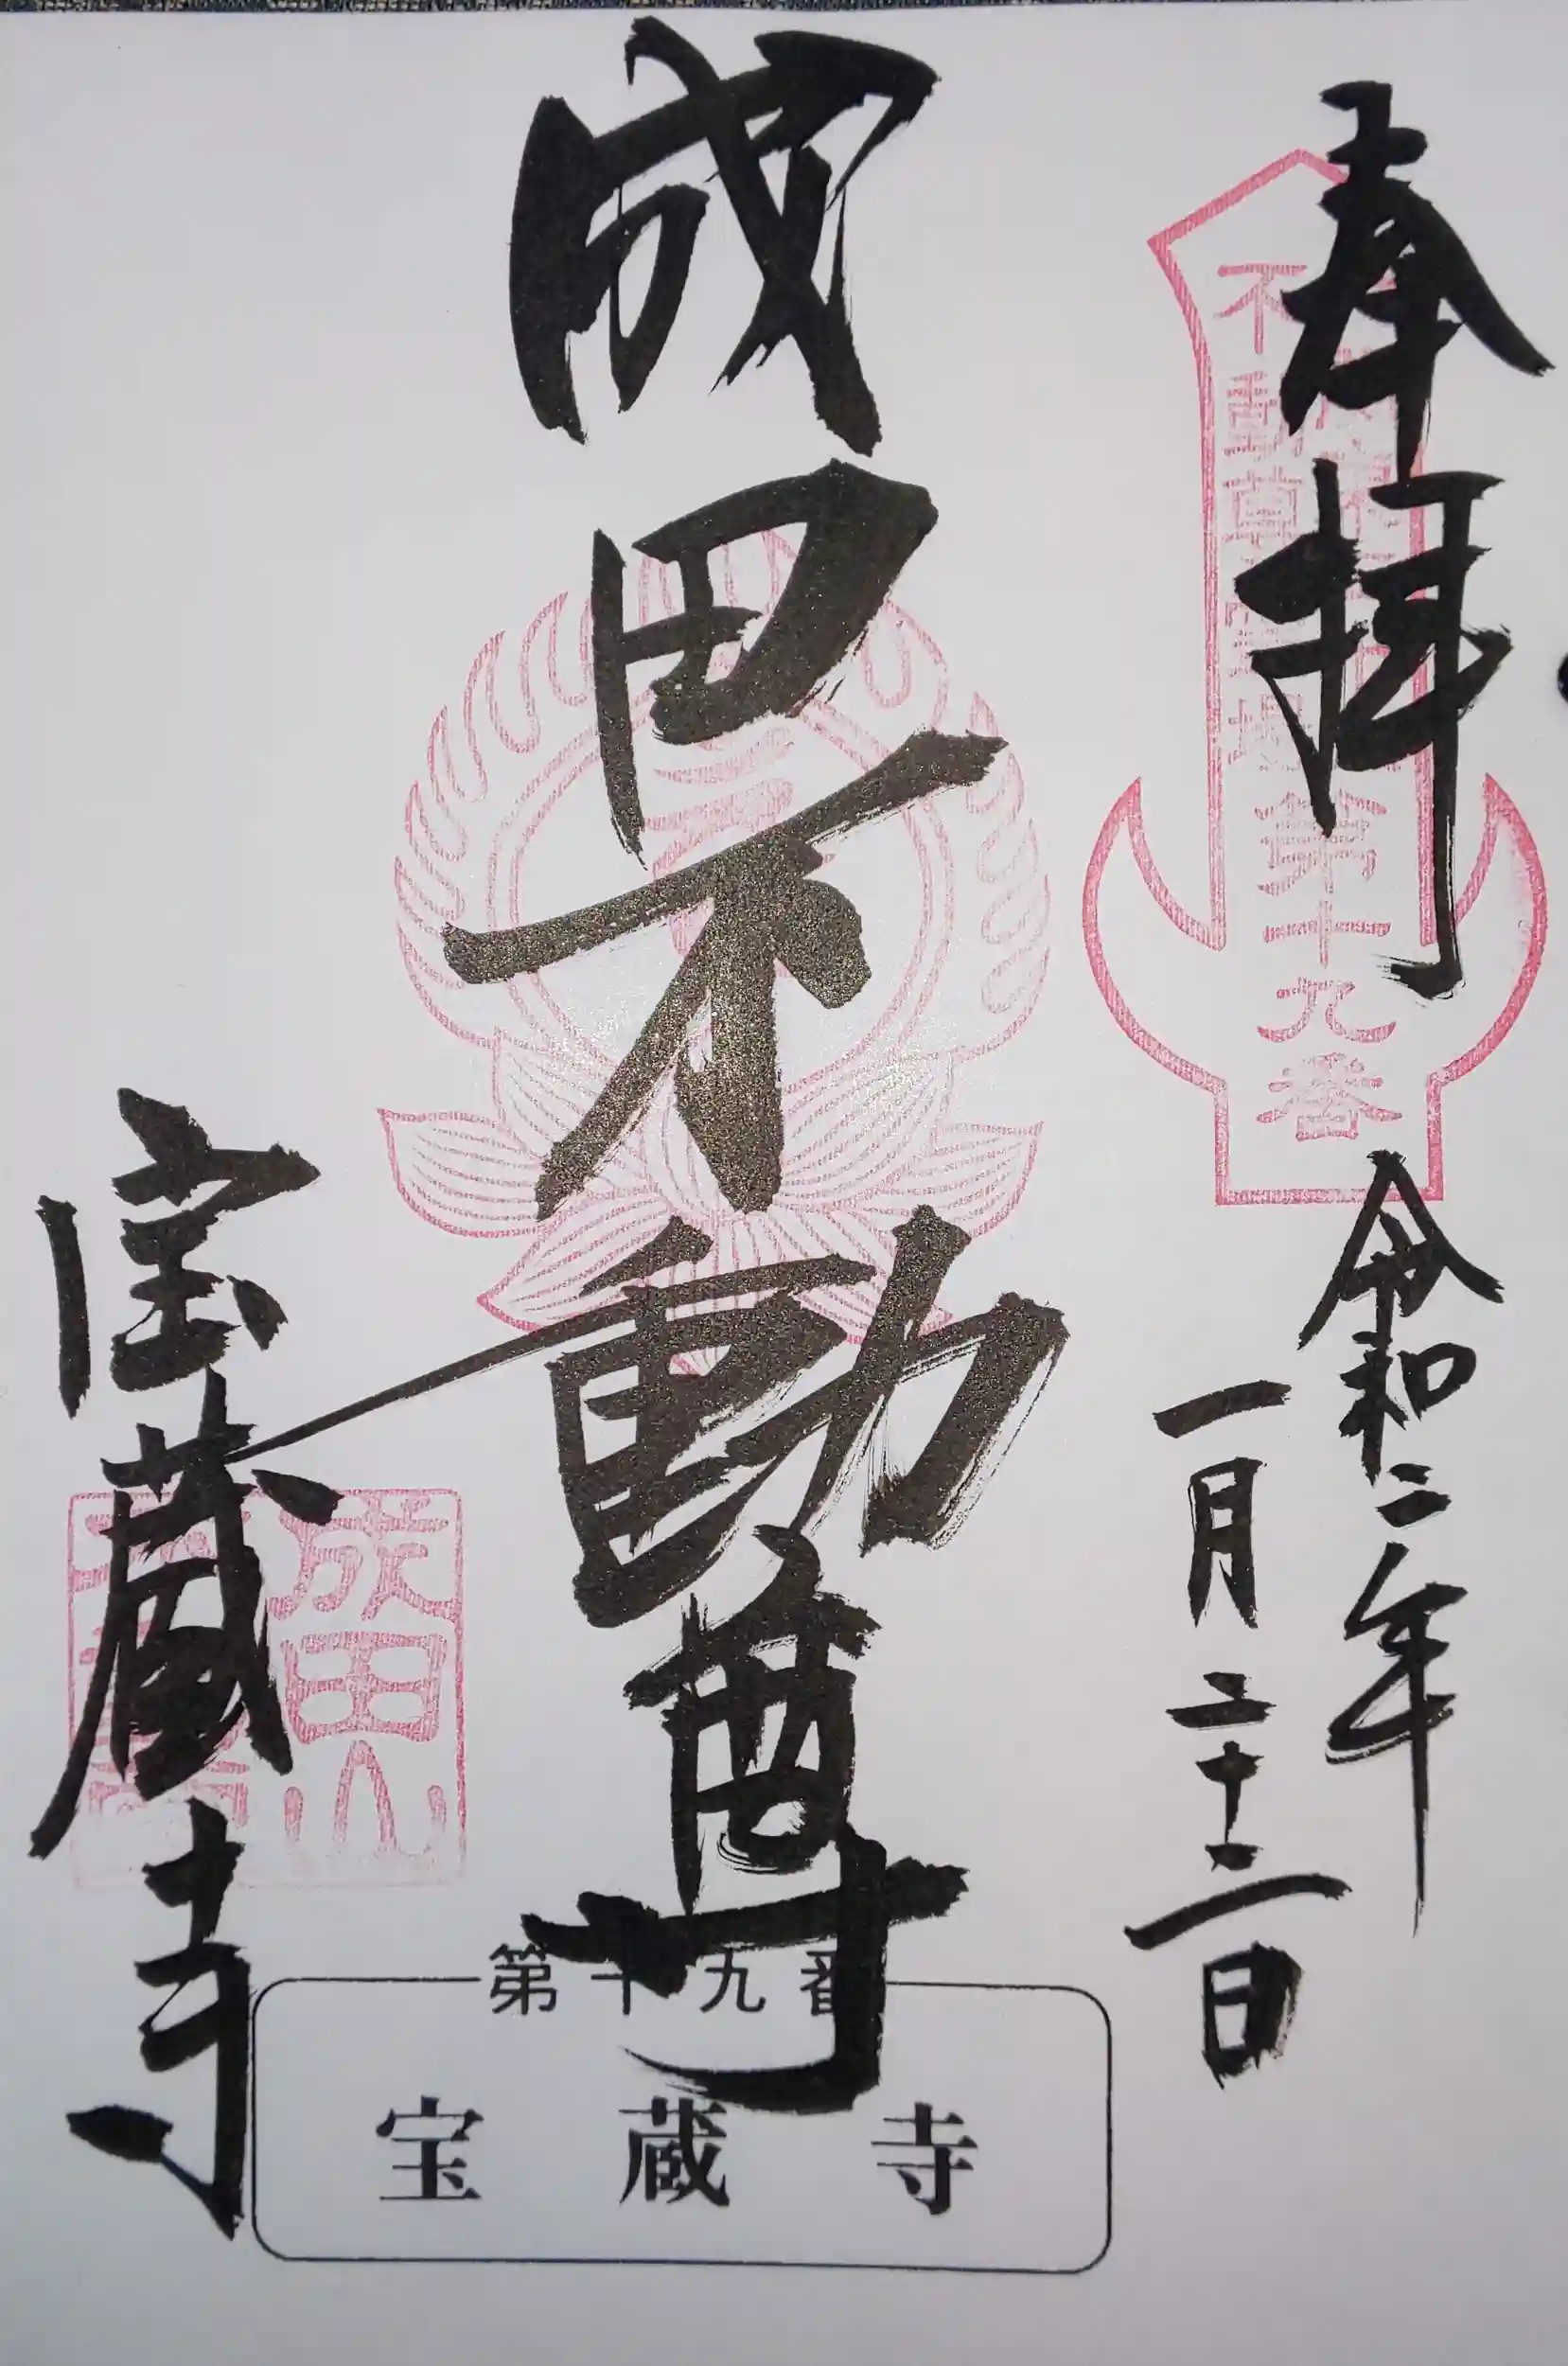 奉拝
令和二年
一月二十二日
成田不動尊
宝蔵寺
第十九番
成田山
第十九番
宝蔵寺